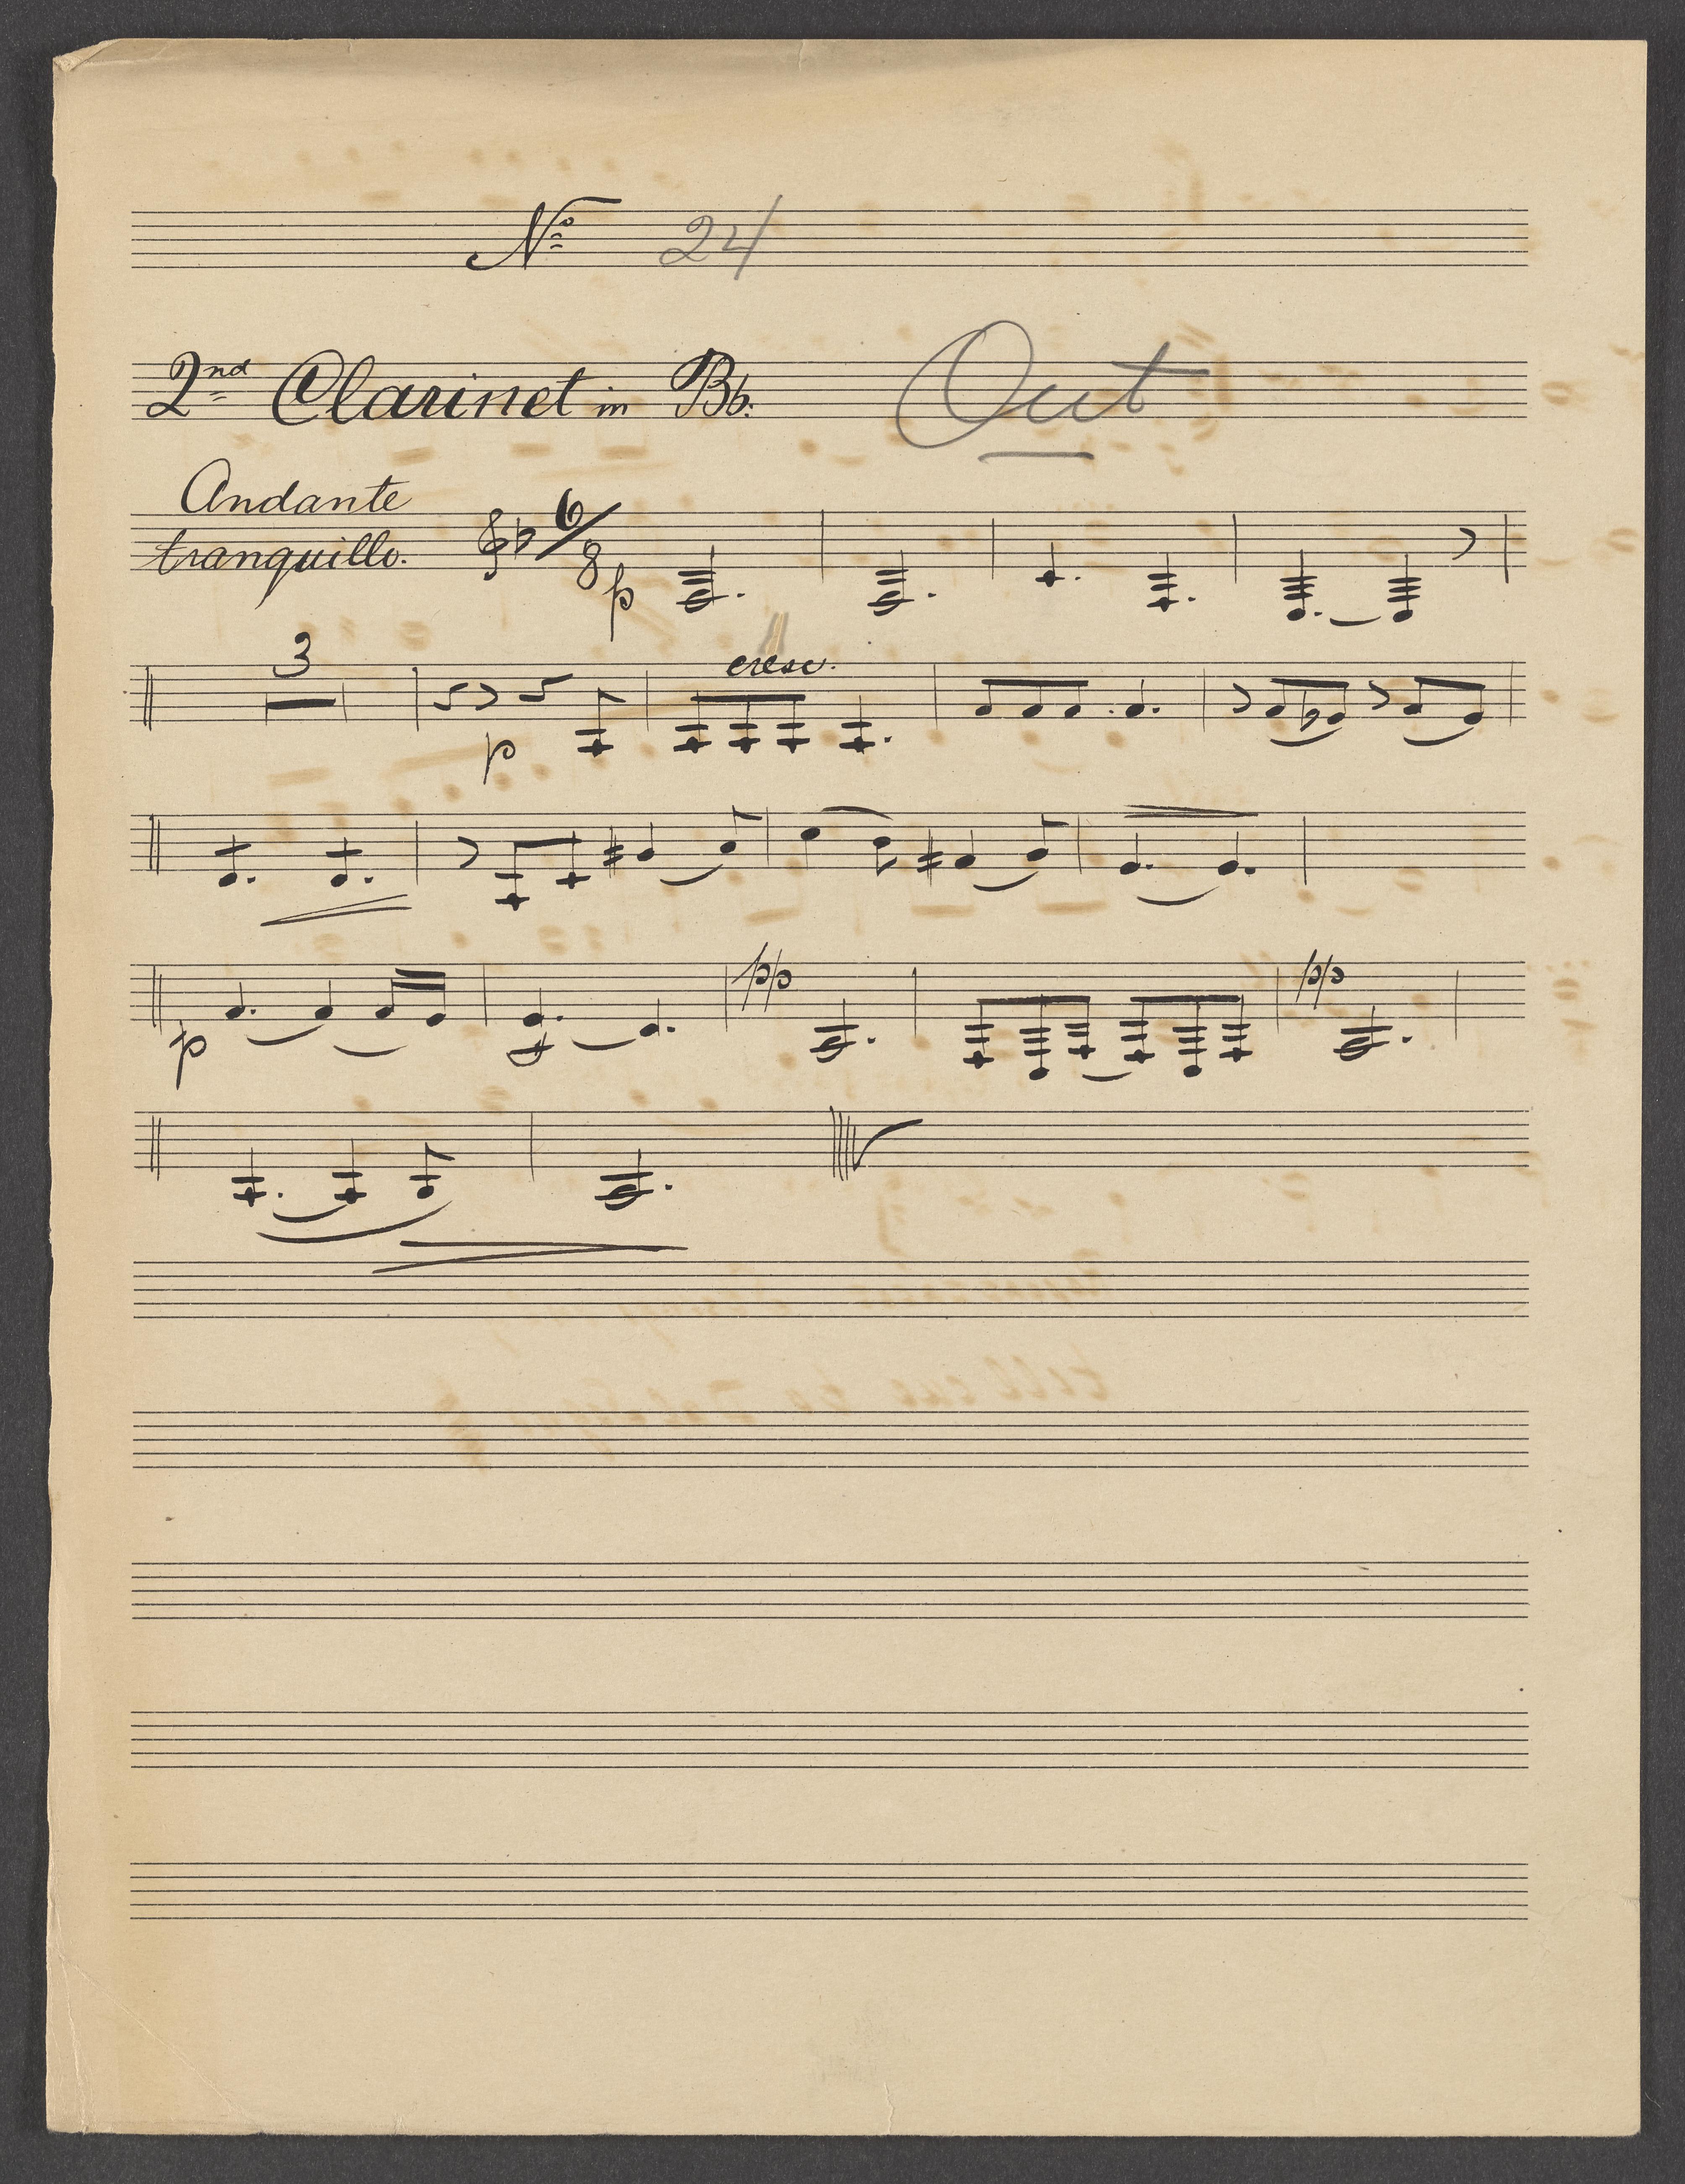 No 24
2nd Clarinet in Bb. Out
Andante
tranquillo.
6/8
p
3
cresc.
p
p
pp
pp